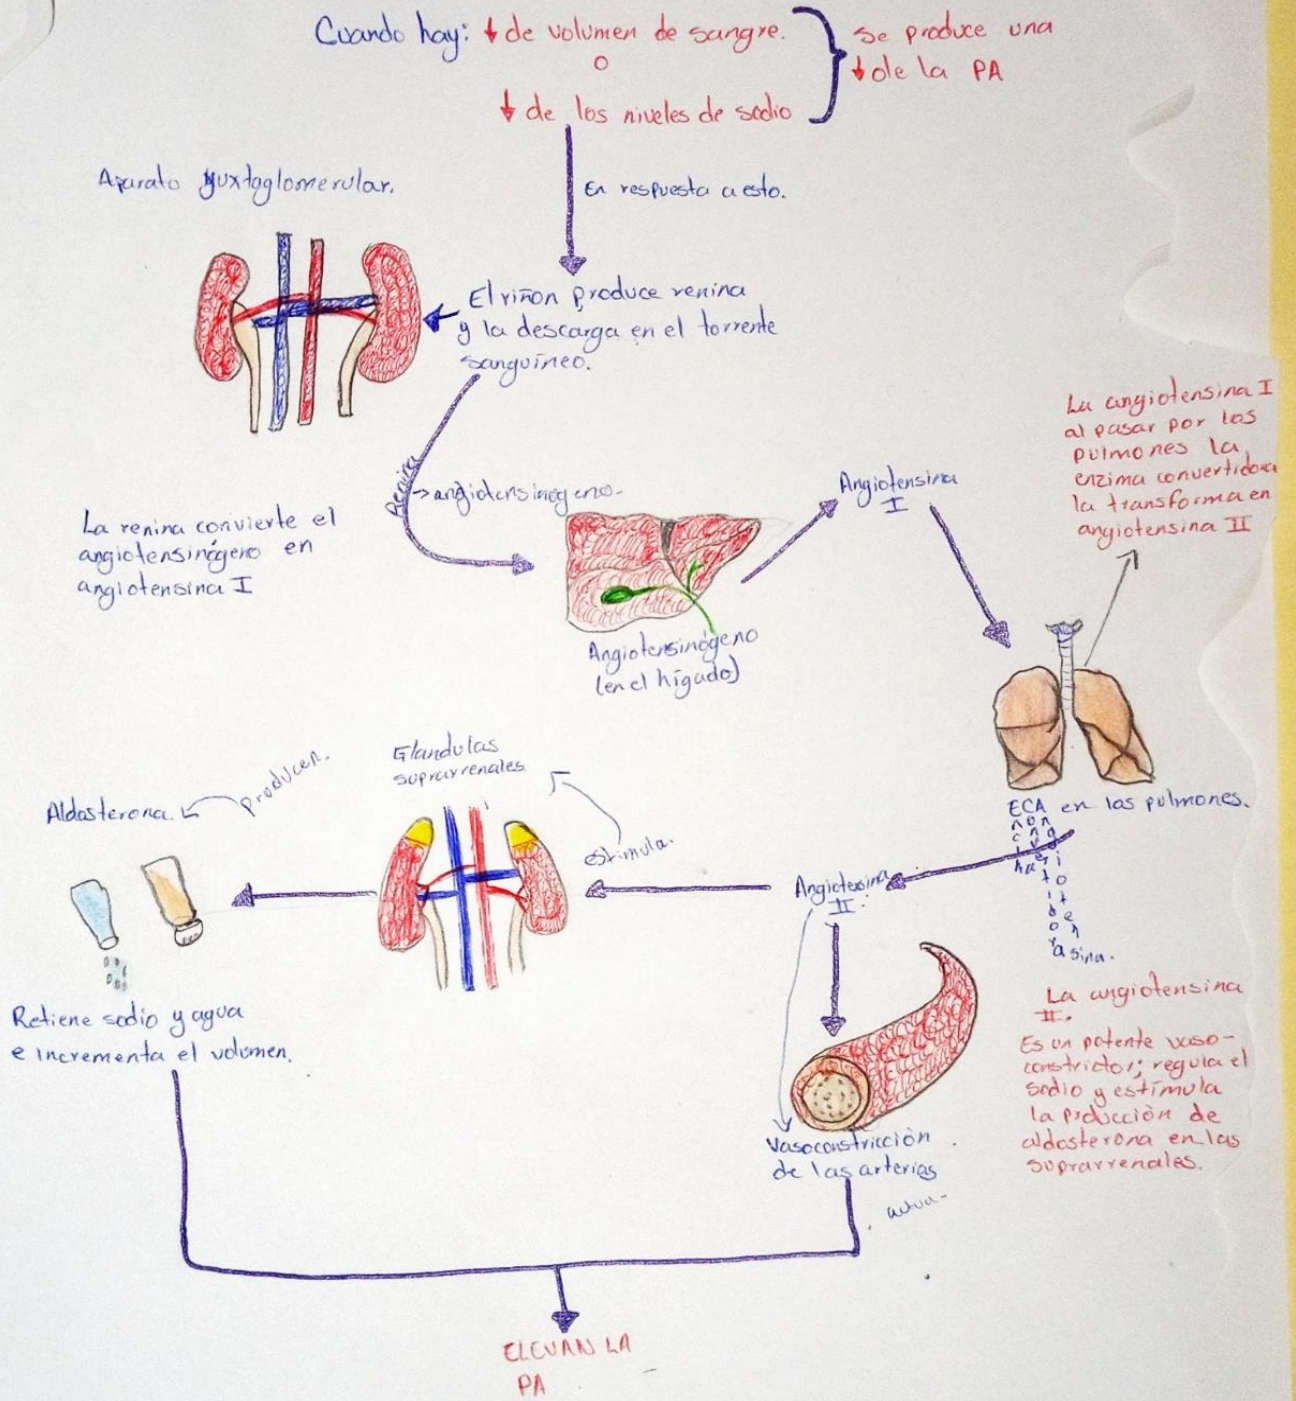 Cuando hay: ↓ de volumen de sangre.
o
↓ de los niveles de sodio
Se produce una
↓ de la PA
En respuesta a esto.
Aparato yuxtaglomerular.
El riñon produce renina
y la descarga en el torrente
sanguíneo.
Renina
→ angiotensinogeno-
La renina convierte el
angiotensinógeno en
angiotensina I
Angiotensinógeno
(en el hígado)
Angiotensina
I
La angiotensina I
al pasar por los
pulmones la
enzima convertidora
la transforma en
angiotensina II
ECA en los pulmones.
Angiotesina
II.
estimula.
Glandulas
suprarrenales
Producen.
Aldosterona.
Retiene sodio y agua
e incrementa el volumen.
Vasoconstricción
de las arterias
La angiotensina
II.
Es un potente vaso-
constrictor; regula el
sodio y estímula
la producción de
aldosterona en las
suprarrenales.
ELEVAN LA
PA